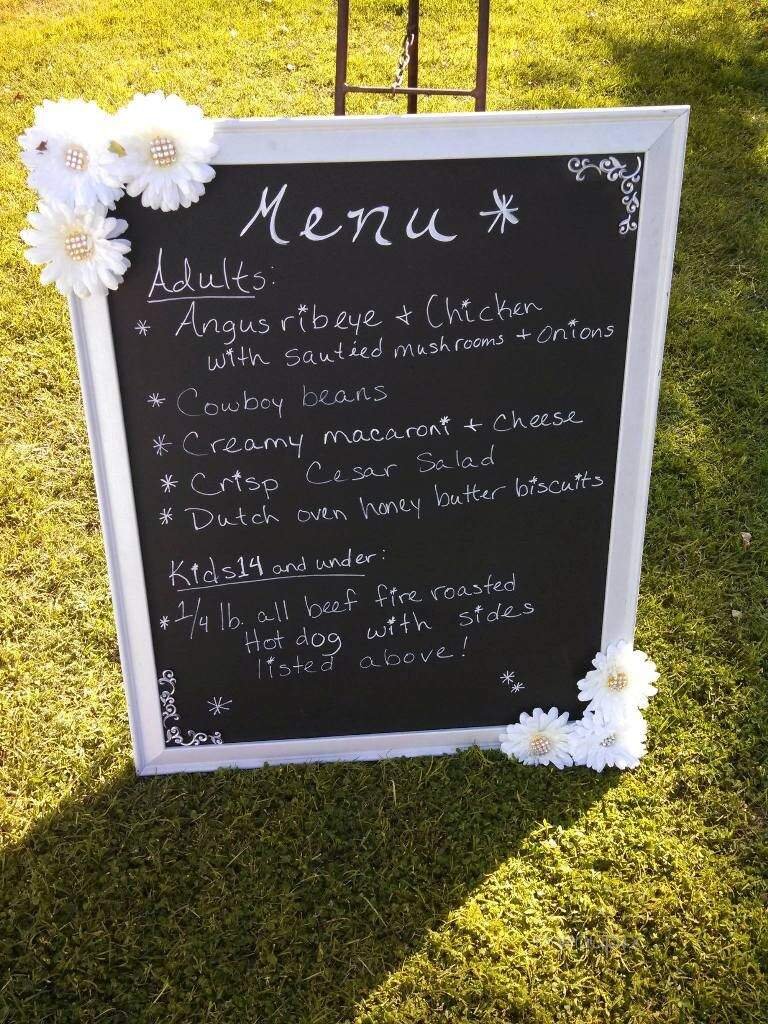 Menu *
Adults:
* Angus ribeye + Chicken
with sautéed mushrooms + onions
* Cowboy beans
* Creamy macaroni + cheese
* Crisp Cesar Salad
* Dutch oven honey butter biscuits
Kids 14 and under:
* 1/4 lb. all beef fire roasted
Hot dog with sides
listed above!